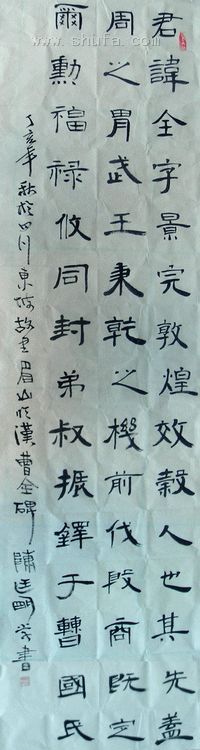 君諱全字景完敦煌效穀人也其先蓋
周之胄武王秉乾之機前伐殷商既定
爾勳福禄攸同封弟叔振鐸于曹國氏
丁亥年秋於四川東坡故里眉山临漢曹全碑 陳
書
www.shufa.com